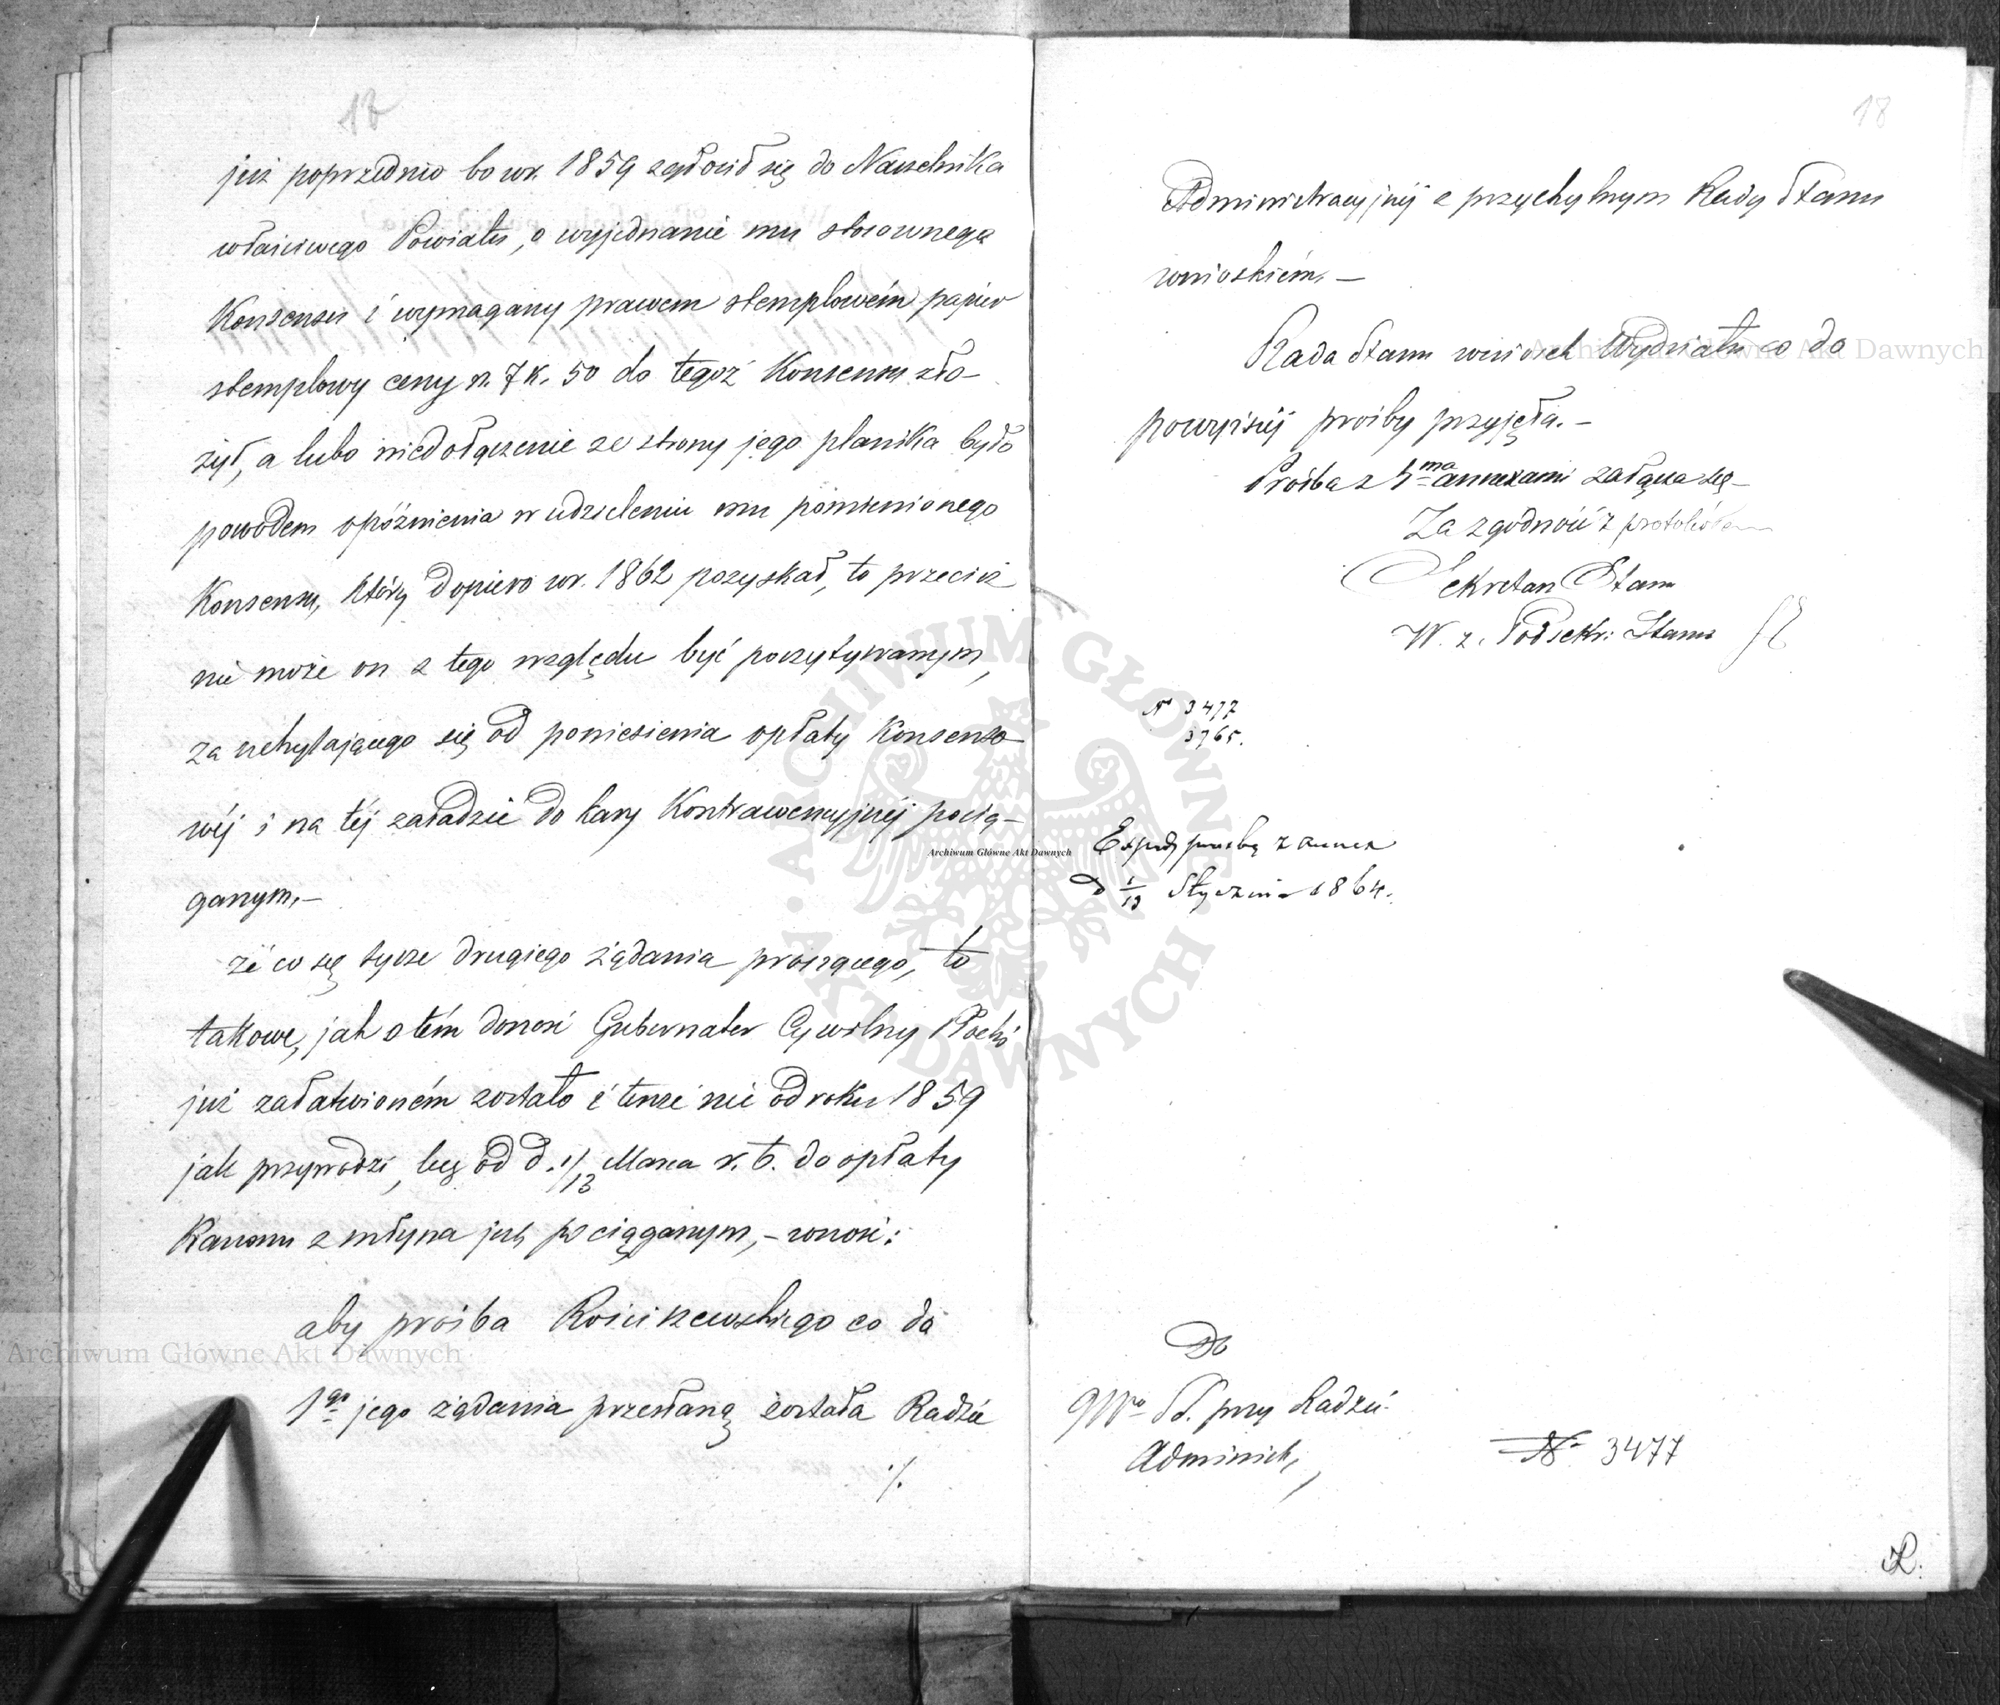 17
już poprzednio bo w r. 1859 zgłosił się do Naczelnika
właściwego Powiatu, o wyjednanie mu stosownego
Konsensu i wymagany prawem stemplowém papier
stemplowy ceny r. 7 k. 50 do tegoż Konsensu zło-
żył, a lubo niedołączenie ze strony jego planika było
powodem opóźnienia w udzieleniu mu pomienionego
Konsensu, który dopiero w r. 1862 pozyskał, to przecież
nie może on z tego względu być poczytywanym,
za uchylającego się od poniesienia opłaty Konsenso-
wéj i na téj zasadzie do kary Kontrawencyjnéj pocią-
ganym.—
że co się tycze drugiego żądania proszącego, to
takowe, jak o tém donosi Gubernator Cywilny Płocki
już załatwioném zostało i tenże nie od roku 1859
jak przywodzi, lecz od d. 1/13 Marca r. b. do opłaty
Kanonu z młyna jest pociąganym,— wnosi:
aby prośba Rościszewskiego co do
1go jego żądania przesłaną została Radzie
./.
18
Administracyjnéj z przychylnym Rady Stanu
wnioskiém.—
Rada Stanu wniosek Wydziału co do
powyższéj prośby przyjęła.—
Prośba z 4ma annexami załącza się—
Za zgodność z protokółem
Sekretarz Stanu
W. z. Podsekr: Stanu
N 3477
3765.
Exped prośbę z annex
D 1/13 Stycznia 1864.
Do
St. przy Radzie
Administr,
N 3477
Archiwum Główne Akt Dawnych
Archiwum Główne Akt Dawnych
Archiwum Główne Akt Dawnych
ARCHIWUM GŁÓWNE AKT DAWNYCH